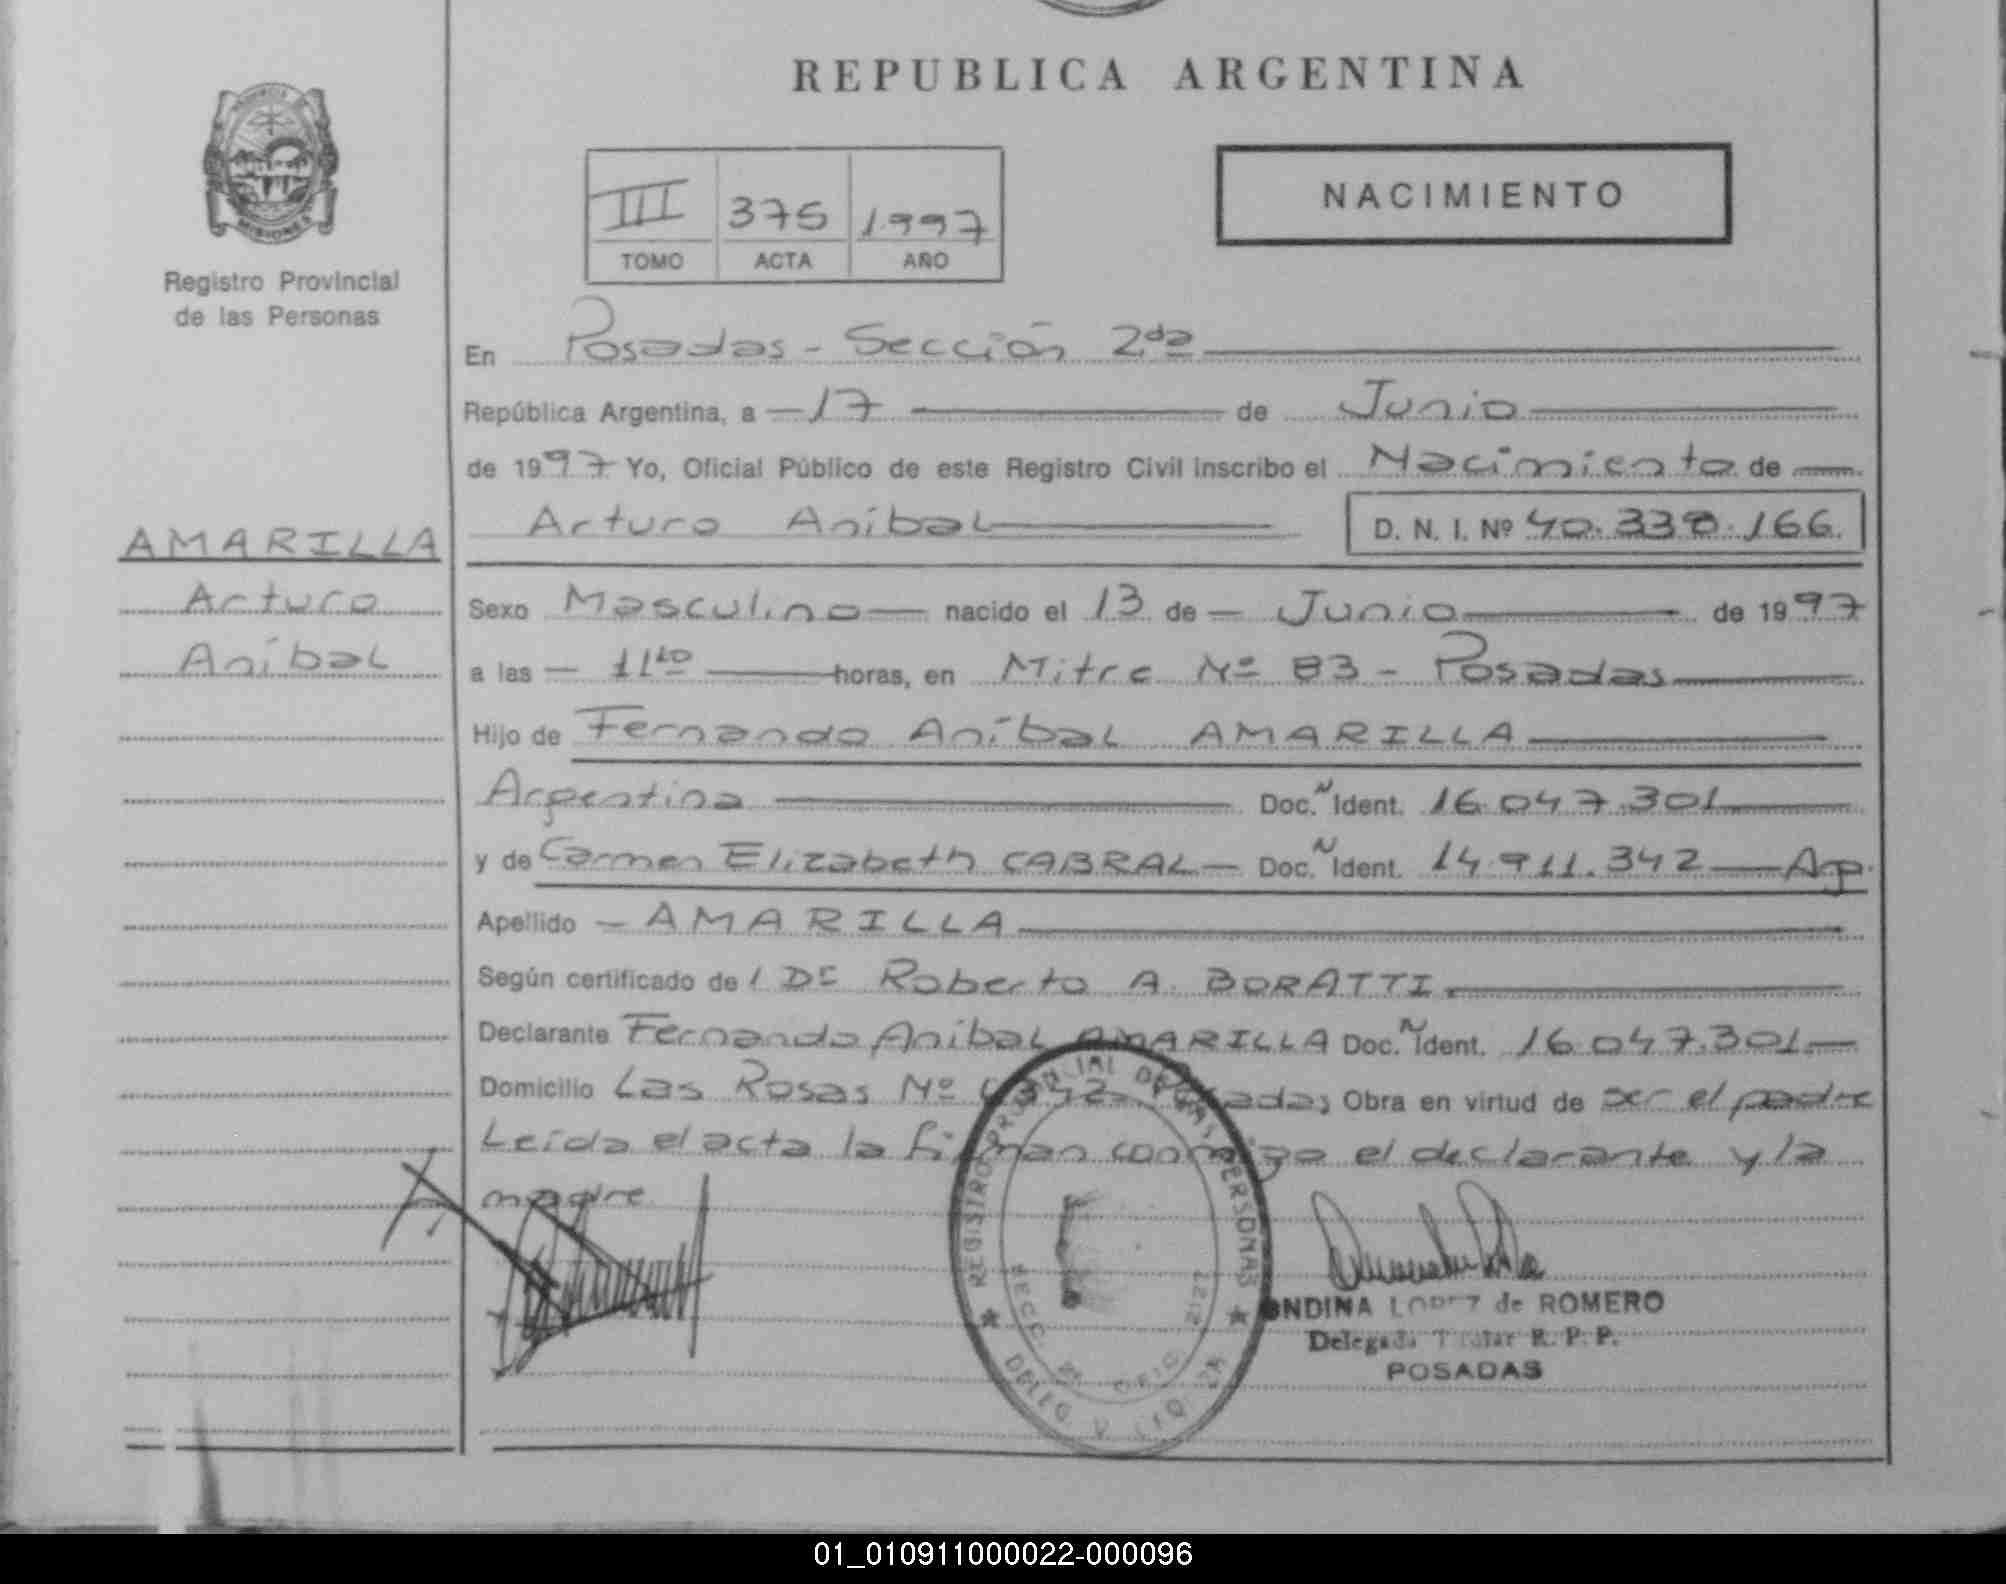 REPUBLICA ARGENTINA
MISIONES
Registro Provincial
de las Personas
III 375 1997
TOMO ACTA AÑO
NACIMIENTO
En Posadas - Sección 2da
República Argentina, a 17 de Junio
de 1997 Yo, Oficial Público de este Registro Civil inscribo el Nacimiento de
Arturo Aníbal D. N. I. Nº 40.338.166.
AMARILLA
Arturo
Aníbal
Sexo Masculino nacido el 13 de Junio de 1997
a las 11 horas, en Mitre Nº 83 - Posadas
Hijo de Fernando Aníbal AMARILLA
Argentina Doc. N Ident. 16.047.301
y de Carmen Elizabeth CABRAL Doc. N Ident. 14.911.342 Arg.
Apellido AMARILLA
Según certificado de l Dr Roberto A. BORATTI.
Declarante Fernando Aníbal AMARILLA Doc. N Ident. 16.047.301.
Domicilio Las Rosas Nº Posadas Obra en virtud de ser el padre
Leída el acta la firman conmigo el declarante y la
madre.
REGISTRO PROVINCIAL DE LAS PERSONAS
SECC. OFIC. 1212
ONDINA LOPEZ de ROMERO
Delegada Titular R. P. P.
POSADAS
01_010911000022-000096